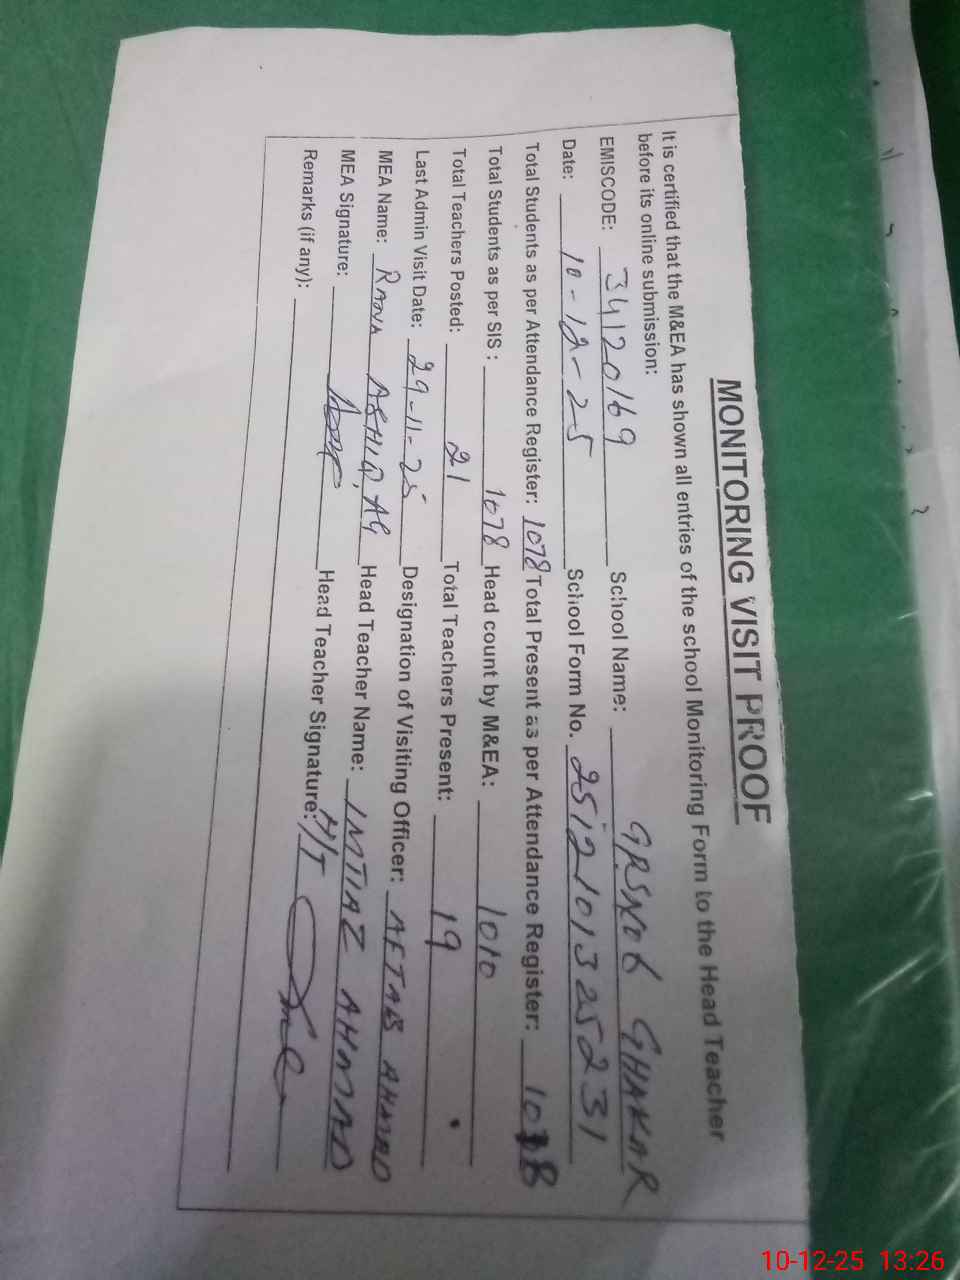 MONITORING VISIT PROOF
It is certified that the M&EA has shown all entries of the school Monitoring Form to the Head Teacher
before its online submission:
EMISCODE: 34120169 School Name: GHAKAR
Date: 10-12-25 School Form No. 2512101325231
Total Students as per Attendance Register: 1078 Total Present as per Attendance Register:
Total Students as per SIS : 1078 Head count by M&EA: 1010
Total Teachers Posted: 21 Total Teachers Present: 19
Last Admin Visit Date: 29-11-25 Designation of Visiting Officer: AFTAB AHMAD
MEA Name: RANA ASHIQ Head Teacher Name: IMTIAZ AHMAD
MEA Signature: Head Teacher Signature: H/T
Remarks (if any):
10-12-25 13:26